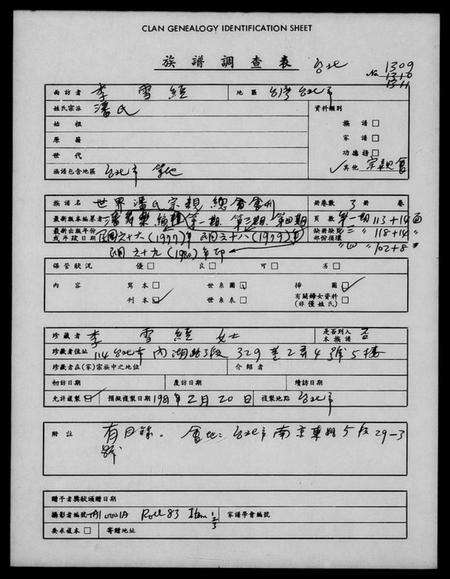 CLAN GENEALOGY IDENTIFICATION SHEET
族譜調查表 台北
No 1309
1310
1311
面訪者 李雪經 地區 台灣台北市
姓氏宗派 潘氏 資料類別
始祖 族譜 □
原籍 家譜 □
世代 功德榜 □
族譜包含地區 台北市 等地 其他 宗親會
族譜名 世界潘氏宗親總會會刊 册卷數 3 册 卷
最新版本編纂者 第一期 第三期 第四期 頁數 第一期 113+14面
最新出版年份或手段年日 民國六十六(1977)年 民國六十八(1979)年 缺顛缺覽部份損壞 〃三〃 118+14〃
民國六十九(1980)年印 〃四〃 102+8〃
保管狀況 優 □ 良 □ 可 □ 否 □
內容 寫本 □ 世系圖 □ 插圖 □
刊本 □ 世系表 □ 有關婦女資料 □
(非僅姓氏)
珍藏者 李雪經 女士 是否列入本族譜 否
珍藏者住址 114 台北市內湖路3段329巷2弄4號5樓
珍藏者在(家)宗族中之地位 介紹者
初訪日期 覆訪日期 續訪日期
允許複製 □ 預擬複製日期 1981年2月20日 複製地點 台北市
附註 有目錄. 會址: 台北市南京東路5段29-3號
贈予者獎狀頒贈日期
攝影者編號 Roll 83 Item 家譜學會編號
要求複本 □ 寄贈地址